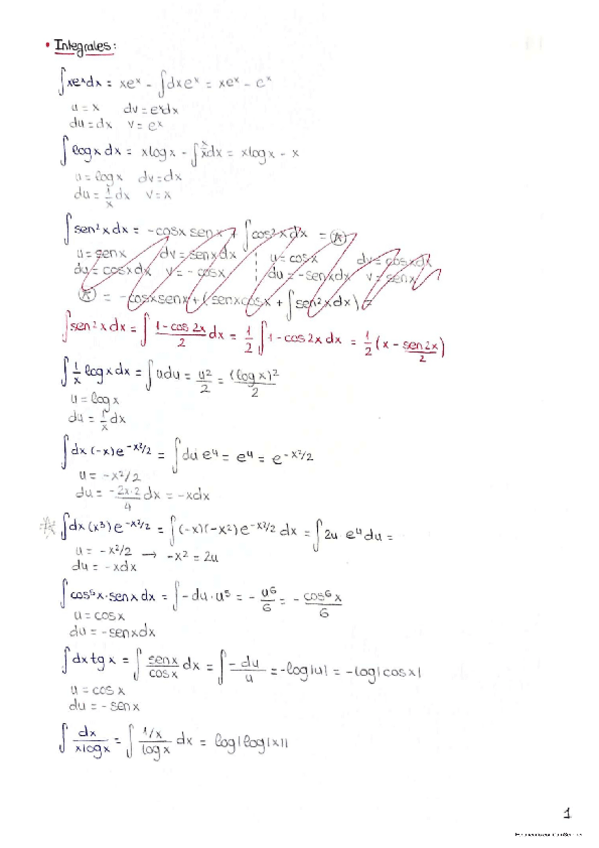 • Integrales:
∫xeˣdx = xeˣ - ∫dxeˣ = xeˣ - eˣ
u = x dv = eˣdx
du = dx v = eˣ
∫logx dx = xlogx - ∫x/x dx = xlogx - x
u = logx dv = dx
du = 1/x dx v = x
∫sen²x dx = -cosx senx + ∫cos²x dx = (*)
u = senx dv = senxdx u = cosx dv = cosxdx
du = cosxdx v = -cosx du = -senxdx v = senx
(*) = -cosxsenx + (senxcosx + ∫sen²xdx) =
∫sen²x dx = ∫ 1-cos2x/2 dx = 1/2 ∫1-cos2x dx = 1/2 (x - sen2x/2)
∫1/x logx dx = ∫udu = u²/2 = (logx)²/2
u = logx
du = 1/x dx
∫dx(-x)e^-x²/2 = ∫du eᵘ = eᵘ = e^-x²/2
u = -x²/2
du = -2x·2/4 dx = -xdx
∫dx(x³)e^-x²/2 = ∫(-x)(-x²)e^-x²/2 dx = ∫2u eᵘdu =
u = -x²/2 → -x² = 2u
du = -xdx
∫cos⁵x·senx dx = ∫-du·u⁵ = - u⁶/6 = - cos⁶x/6
u = cosx
du = -senxdx
∫dx tgx = ∫ senx/cosx dx = ∫ -du/u = -log|u| = -log|cosx|
u = cosx
du = -senx
∫ dx/xlogx = ∫ 1/x/logx dx = log|log|x||
1